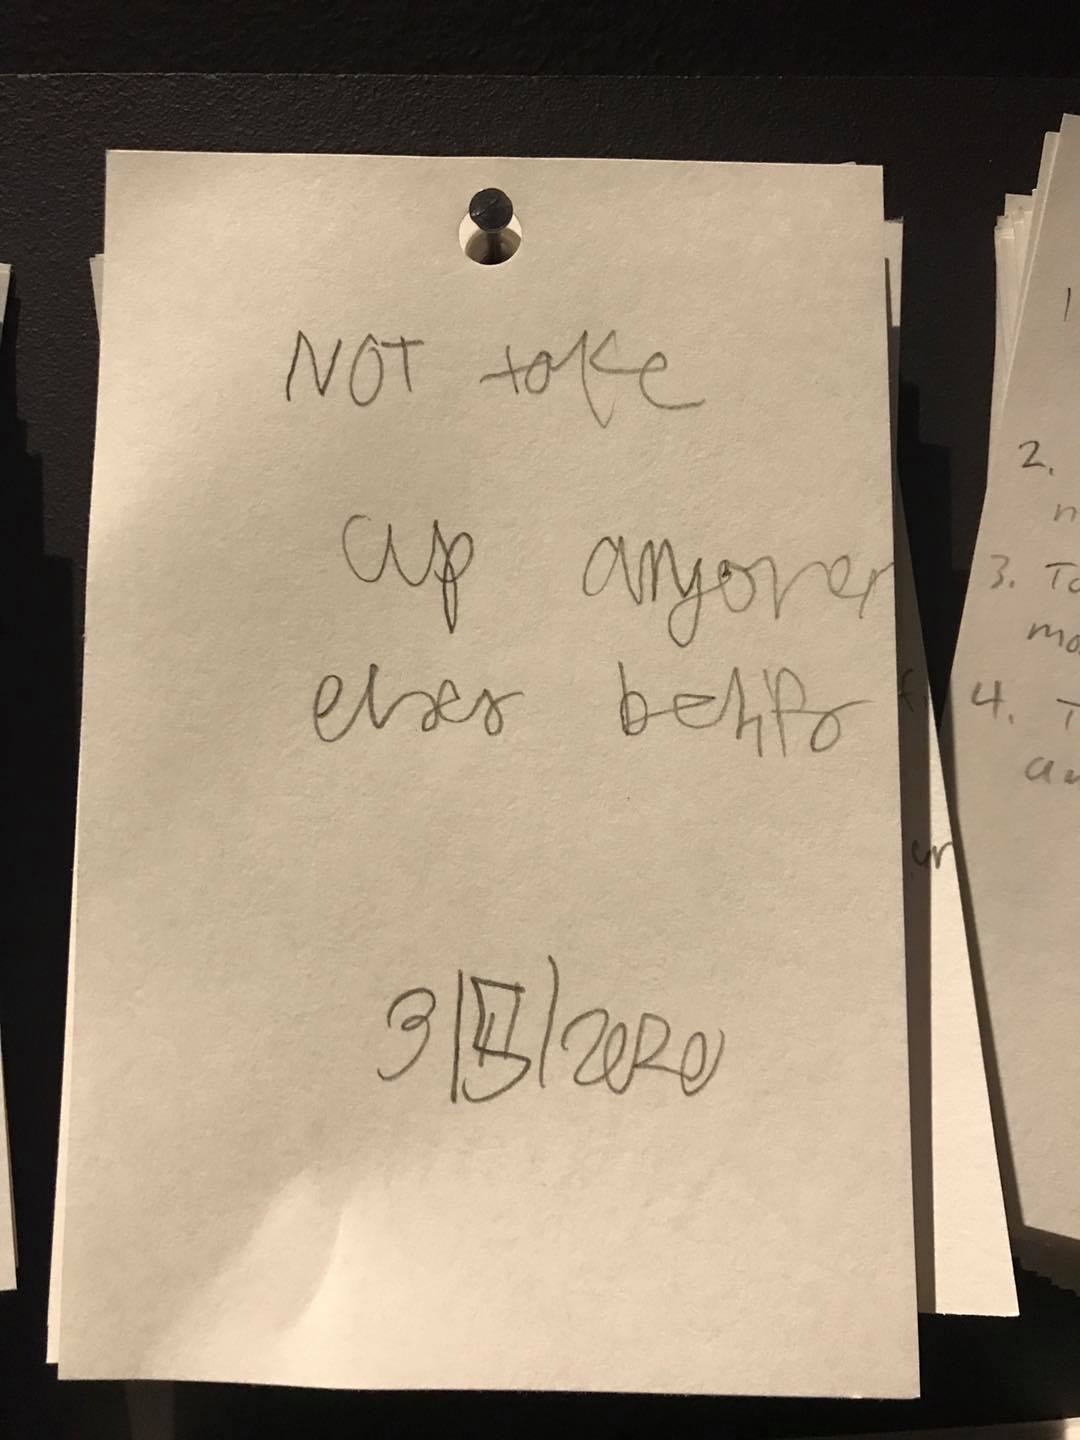 NOT take
up anyone
elses
3/5/2020
1
2.
n
3. To
mo
4. T
an
er